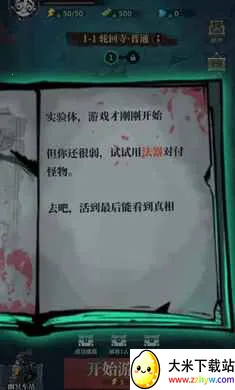 50/50
0
0
1-1 轮回寺·普通
1
实验体，游戏才刚刚开始
但你还很弱，试试用法器对付
怪物。
去吧，活到最后能看到真相
开始游
大米下载站
www.zzhyw.com